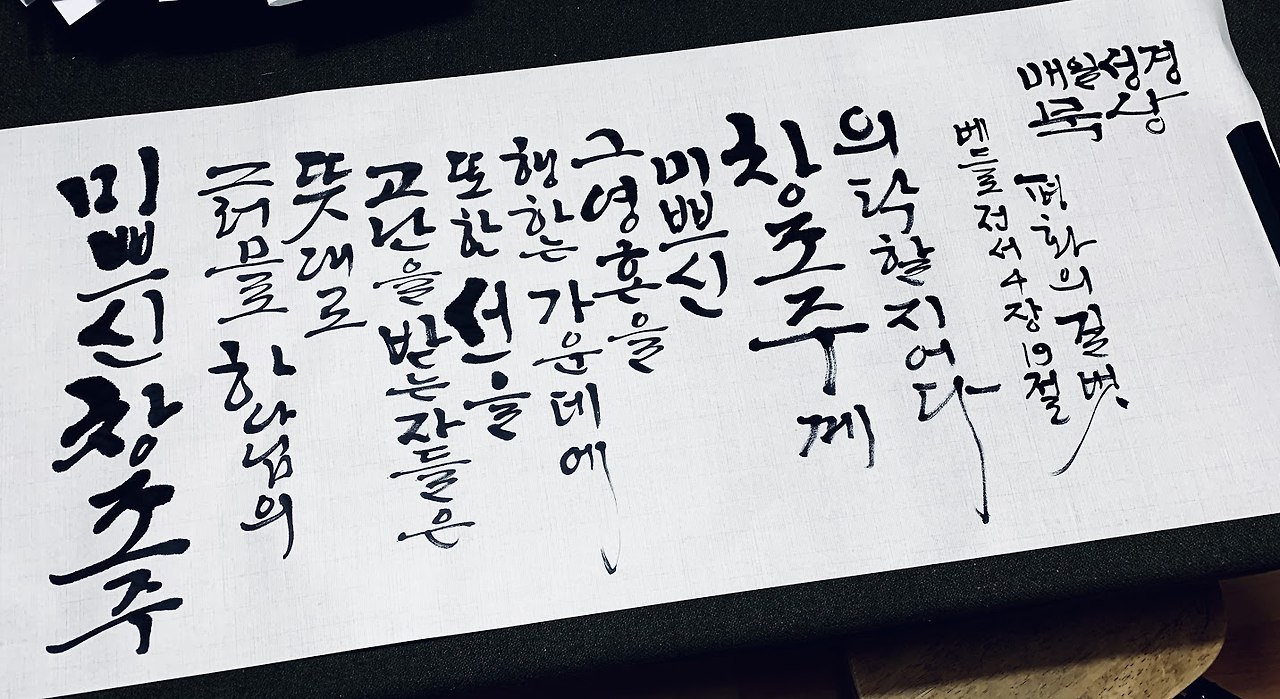 미쁘신 창조주
그러므로 하나님의
뜻대로
고난을 받는 자들은
또한 선을
행하는 가운데에
그 영혼을
미쁘신
창조주께
의탁할지어다
베드로전서 4장 19절
매일성경
묵상
평화의 길벗